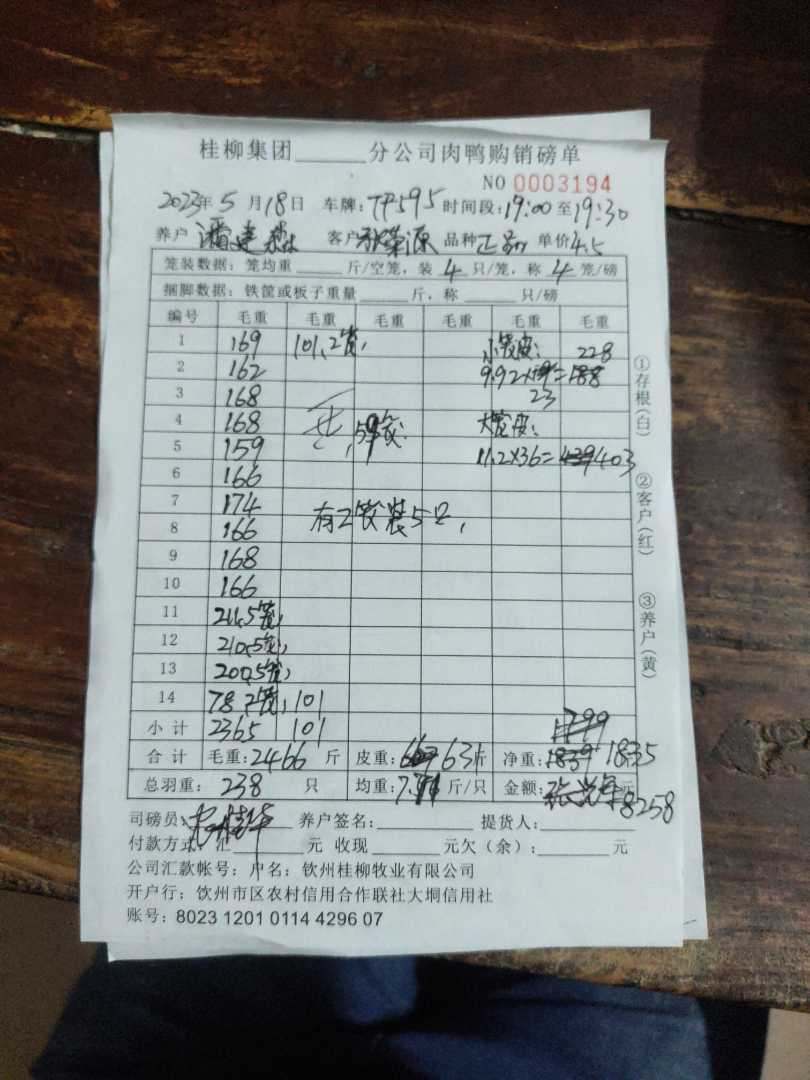 桂柳集团______分公司肉鸭购销磅单
NO 0003194
2023年5月18日 车牌:TP595 时间段:19:00至19:30
养户 客户 荣源 品种 正 单价4.5
笼装数据:笼均重_____斤/空笼,装4只/笼,称4笼/磅
捆脚数据:铁筐或板子重量_____斤,称_____只/磅
编号 毛重 毛重 毛重 毛重 毛重
1 169 101,2笼, 小笼皮: 228
2 162 9.92× =188
3 168 23
4 168 共,59笼: 大笼皮:
5 159 11.2×36=439 403
6 166
7 174
8 166 有2笼装5只,
9 168
10 166
11 211,5笼,
12 210,5笼,
13 200,5笼,
14 78,2笼, 101
小计 2365 101 1799
合计 毛重:2466斤 皮重: 631斤 净重:1839 1835
总羽重:238只 均重:7. 斤/只 金额: 元8258
司磅员: 养户签名:_____ 提货人:_____
付款方式:汇____元 收现____元欠(余):____元
公司汇款帐号:户名:钦州桂柳牧业有限公司
开户行:钦州市区农村信用合作联社大垌信用社
账号:8023 1201 0114 4296 07
①存根(白)
②客户(红)
③养户(黄)